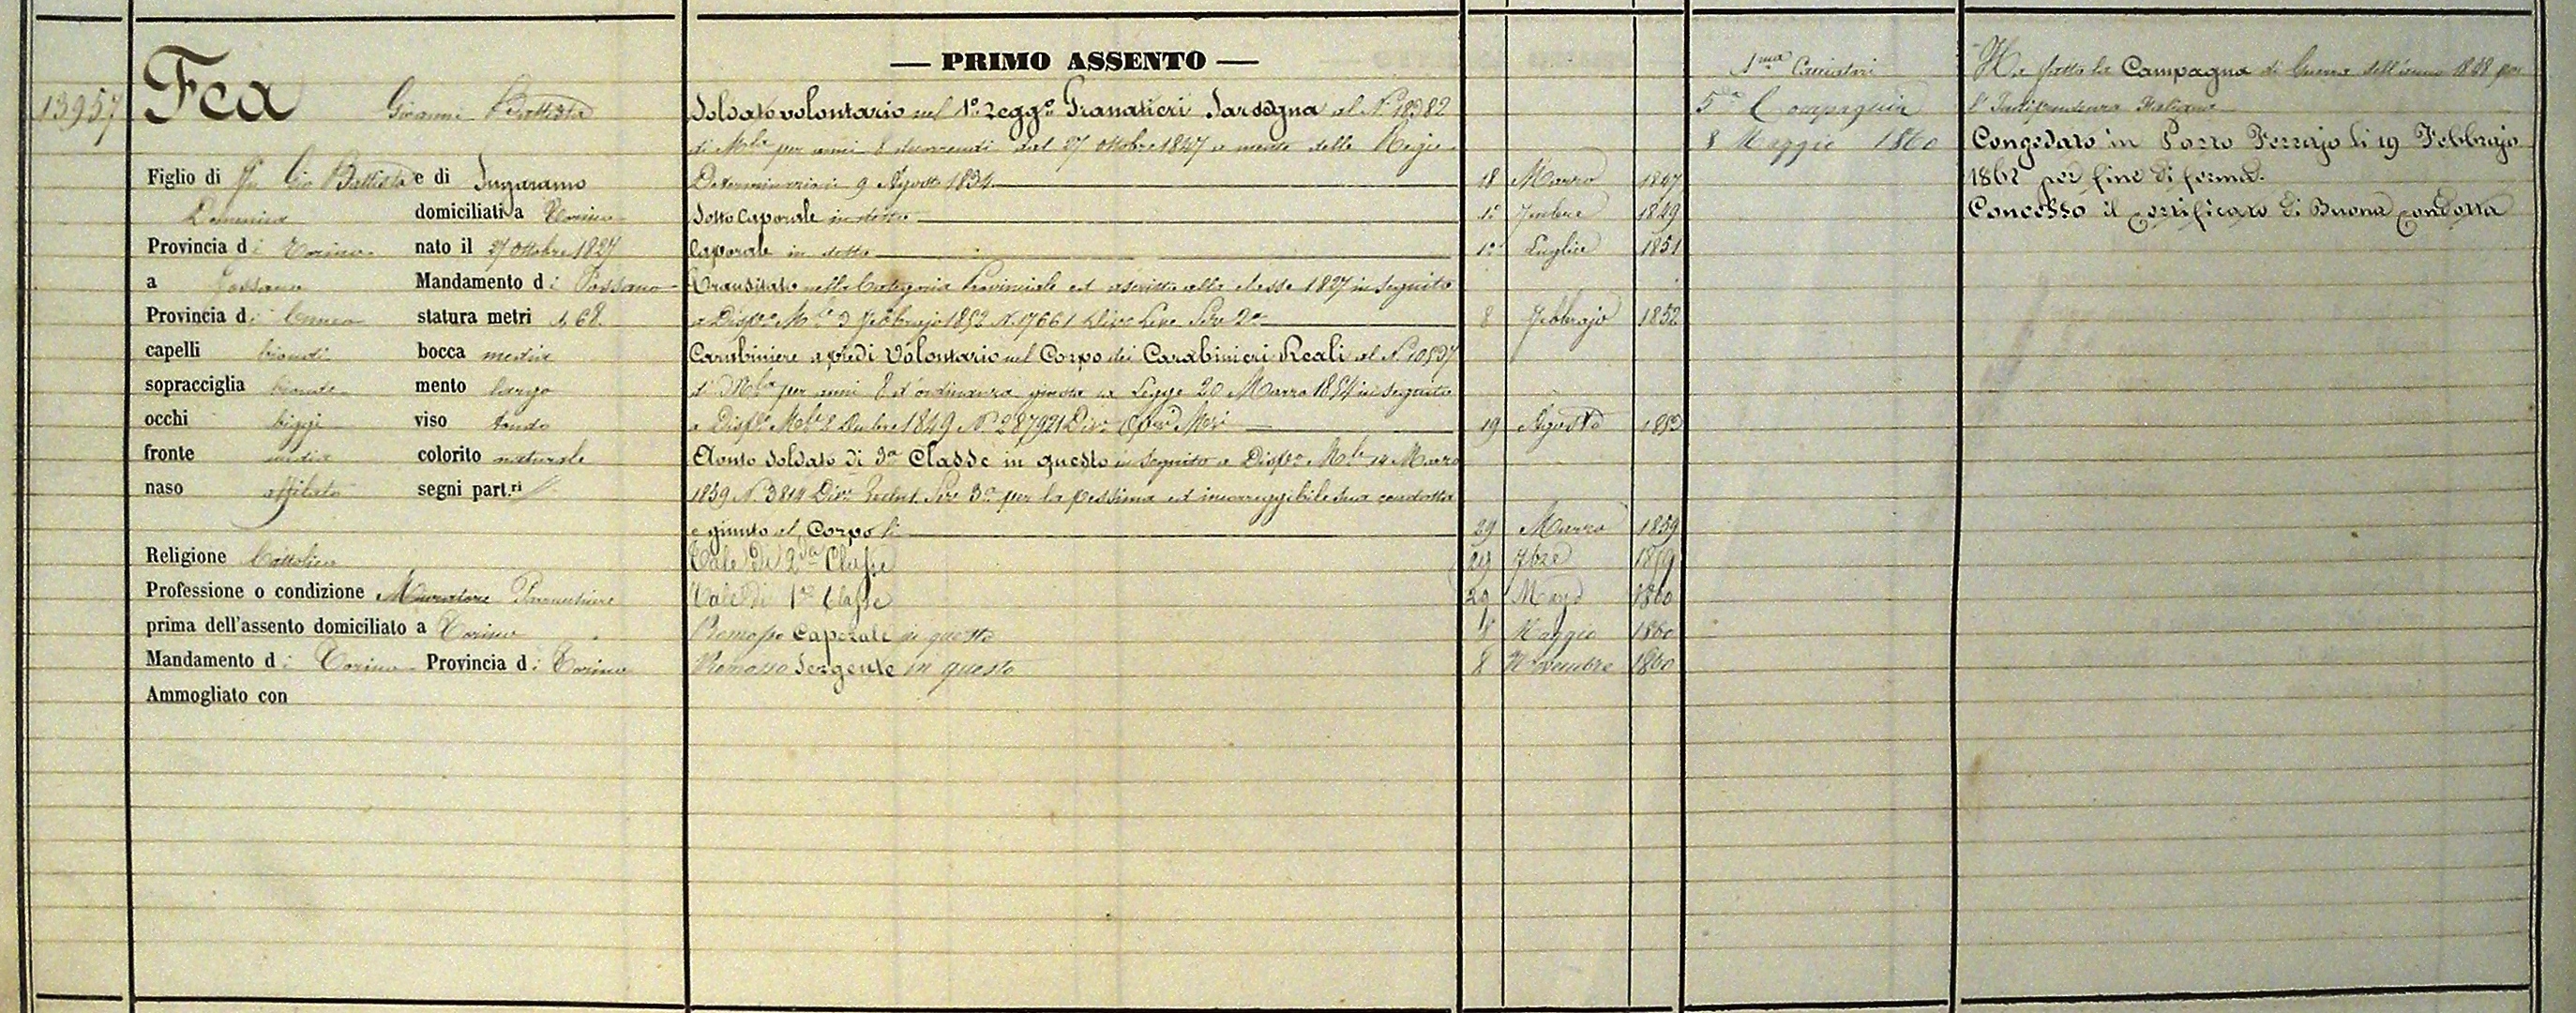 13957
Fea Giovanni Battista
Figlio di fu Gio Battista e di Sugaramo
Domenica domiciliati a Torino
Provincia di Torino nato il 27 Ottobre 1827
a Fossano Mandamento di Fossano
Provincia di Cuneo statura metri 1,68.
capelli biondi bocca media
sopracciglia bionde mento largo
occhi biggi viso tondo
fronte media colorito naturale
naso affilato segni part.ri //
Religione Cattolica
Professione o condizione Muratore
prima dell'assento domiciliato a Torino
Mandamento di Torino Provincia di Torino
Ammogliato con
— PRIMO ASSENTO —
Soldato volontario nel 1º Reggº Granatieri Sardegna al Nº 18982
di Mla per anni 8 decorrendi dal 27 Ottobre 1847 a mente delle Regie
Determinazioni 9 Agosto 1834 18 Marzo 1847
Sotto Caporale in detto 1º 1849
Caporale in detto 1º Luglio 1851
Transitato nella Categoria Provinciale ed ascritto alla classe 1827 in seguito
a Dispº Mle 3 Febbrajo 1852 N. 17661 Divº Leve Sezº 2ª 8 Febbrajo 1852
Carabiniere a piedi Volontario nel Corpo dei Carabinieri Reali al Nº 10597
di Mla per anni 8 d'ordinanza giusta la Legge 20 Marzo 1854 in seguito
a Dispº Mle 8 1849 Nº 287921 Divº 19 Agosto
Giunto soldato di 3ª Classe in questo in seguito a Dispº Mle 14 Marzo
1859 Nº 3814 Divº Sezº 3ª per la pessima ed incorreggibile sua condotta
e giunto al Corpo li 29 Marzo 1859
Tale di 2da Classe 29 7bre 1859
Tale di 1ª Classe 29 1860
Promosso Caporale in questo 8 Maggio 1860
Promosso Sergente in questo 8 Novembre 1860
1ma Cacciatori
5ª Compagnia
8 Maggio 1860
Ha fatto la Campagna di Guerra dell'anno 1848 per
l'Indipendenza Italiana
Congedato in Porto Ferrajo li 19 Febbrajo
1862 per fine di ferma.
Concesso il Certificato di Buona Condotta